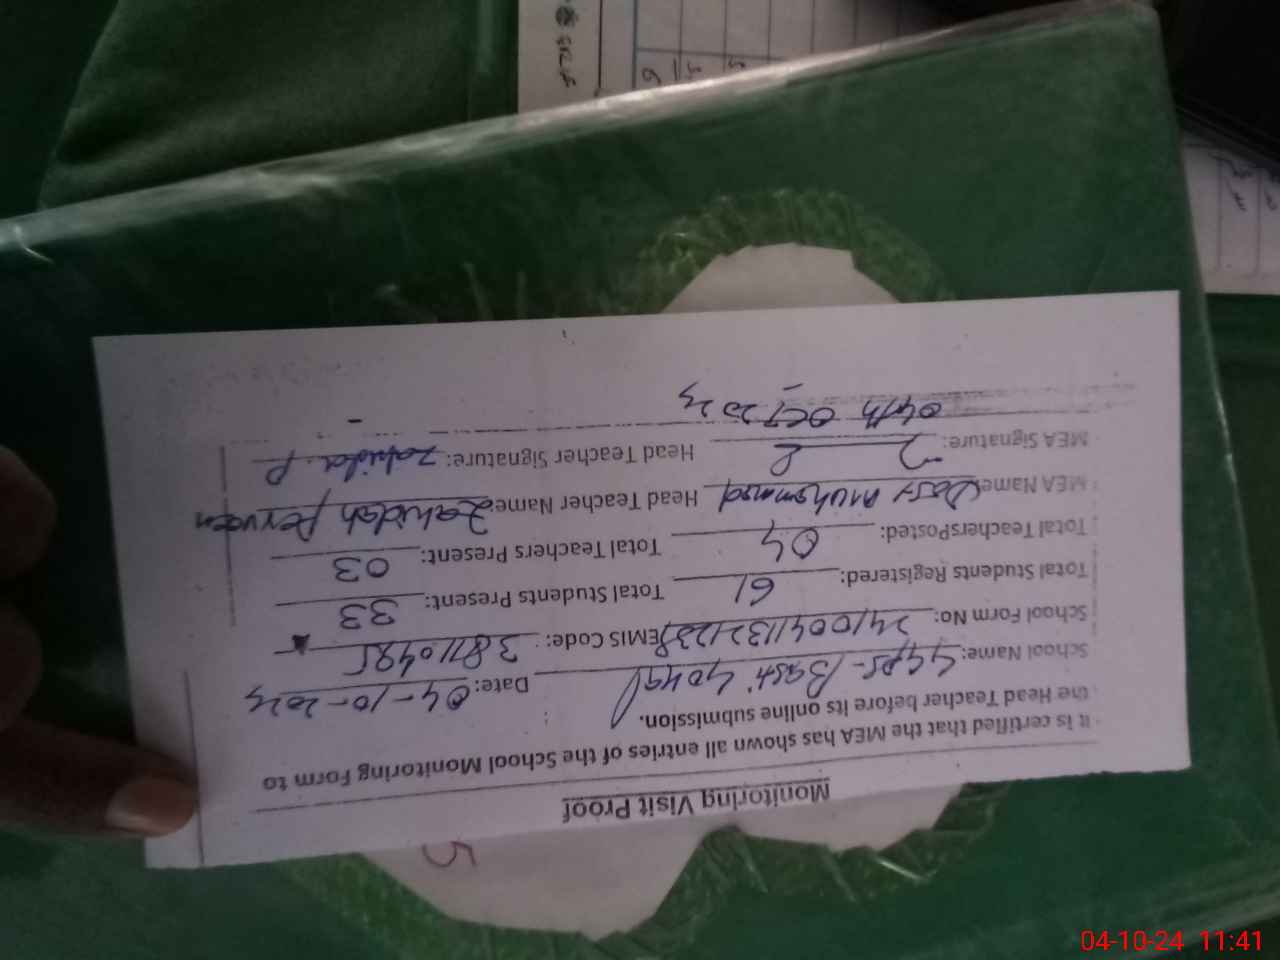 Monitoring Visit Proof
It is certified that the MEA has shown all entries of the School Monitoring Form to
the Head Teacher before its online submission.
School Name: GGPS- Basti Gohal Date: 04-10-2024
School Form No: EMIS Code:
Total Students Registered: 61 Total Students Present: 33
Total TeachersPosted: 04 Total Teachers Present: 03
MEA Name: Dost Muhammad Head Teacher Name Zahidah Perveen
MEA Signature: Head Teacher Signature: Zahida. P
04th OCT 2024
5
04-10-24 11:41